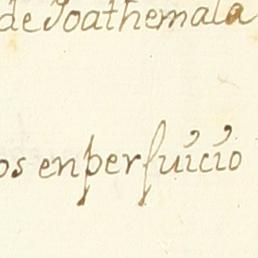 de Goathemala
os enperfuicio